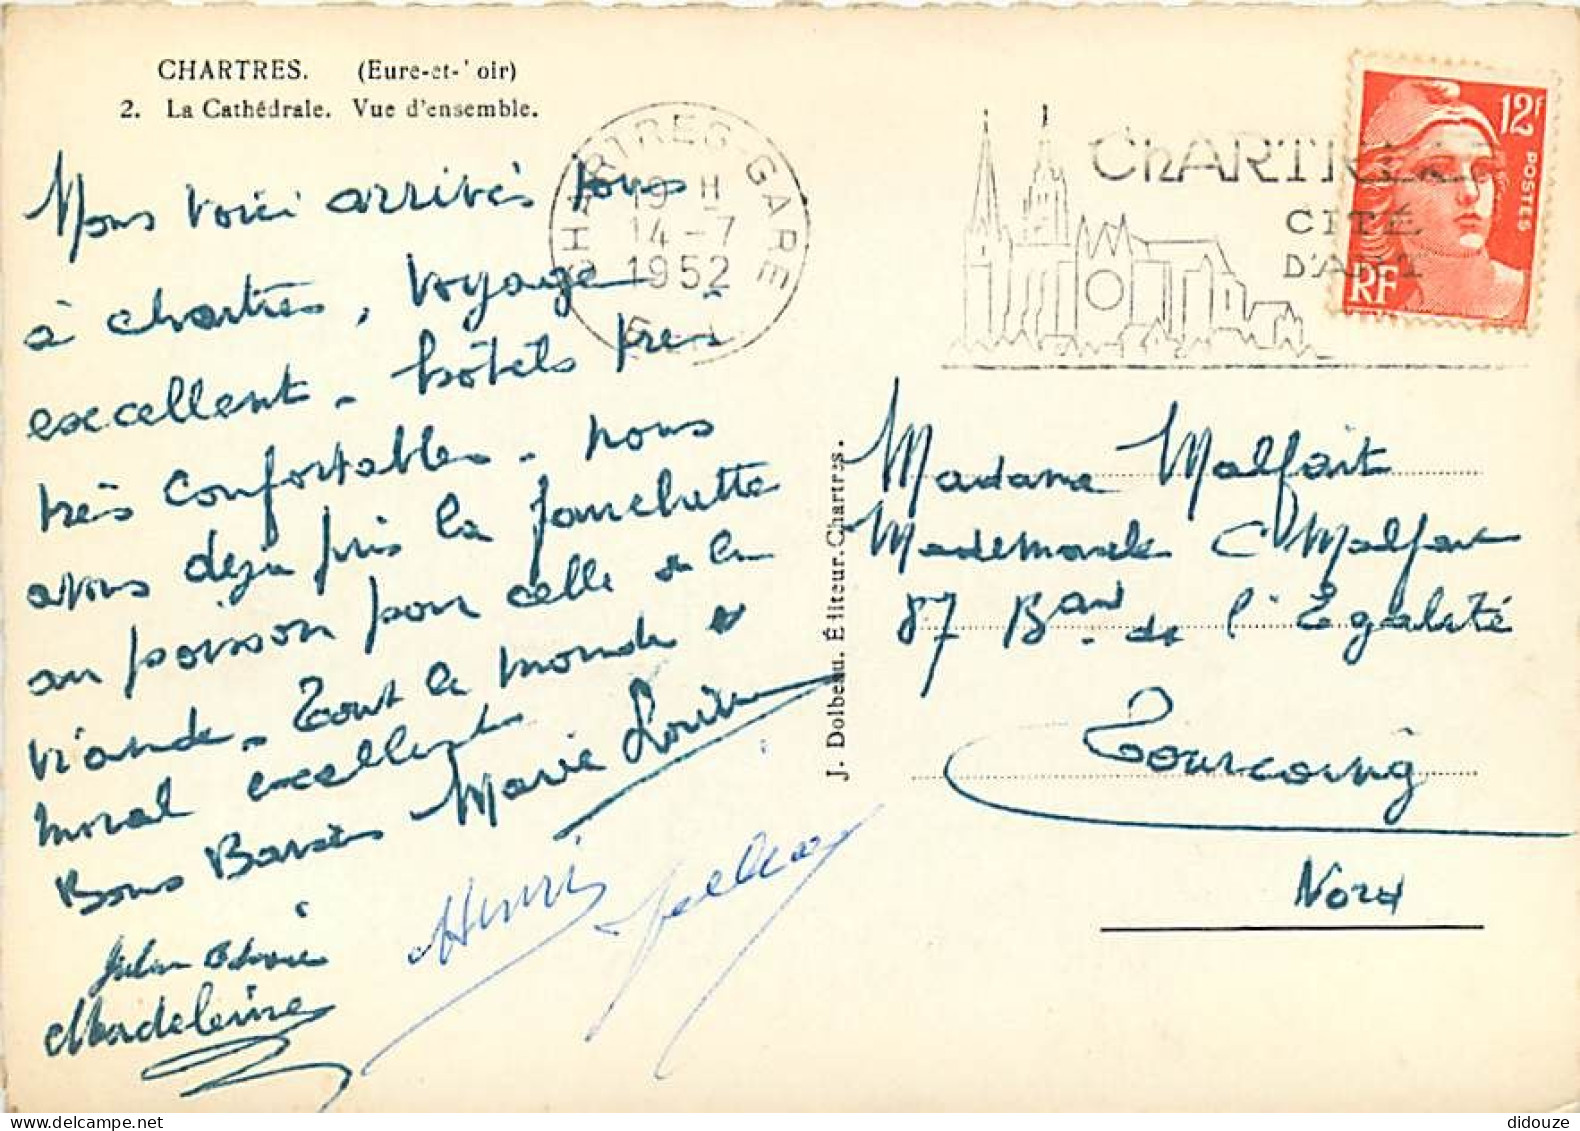 CHARTRES. (Eure-et-'oir)
2. La Cathédrale. Vue d'ensemble.
CHARTRES-GARE
19 H
14-7
1952
CHARTRES
CITÉ
D'ART
12F
POSTES
RF
Nous voici arrivés tous
à chartres, voyage
excellent - hôtels très -
très confortables - nous
avons déjà pris la fourchette
au poisson pour celle à la
viande - Tout le monde a
moral excellent
Bons Baisers Marie Louise
Henri
Madeleine
J. Dolbeau. Éditeur. Chartres.
Madame Malfait
Mademoiselle C Malfait
87 Bd de l'Egalité
Tourcoing
Nord
didouze